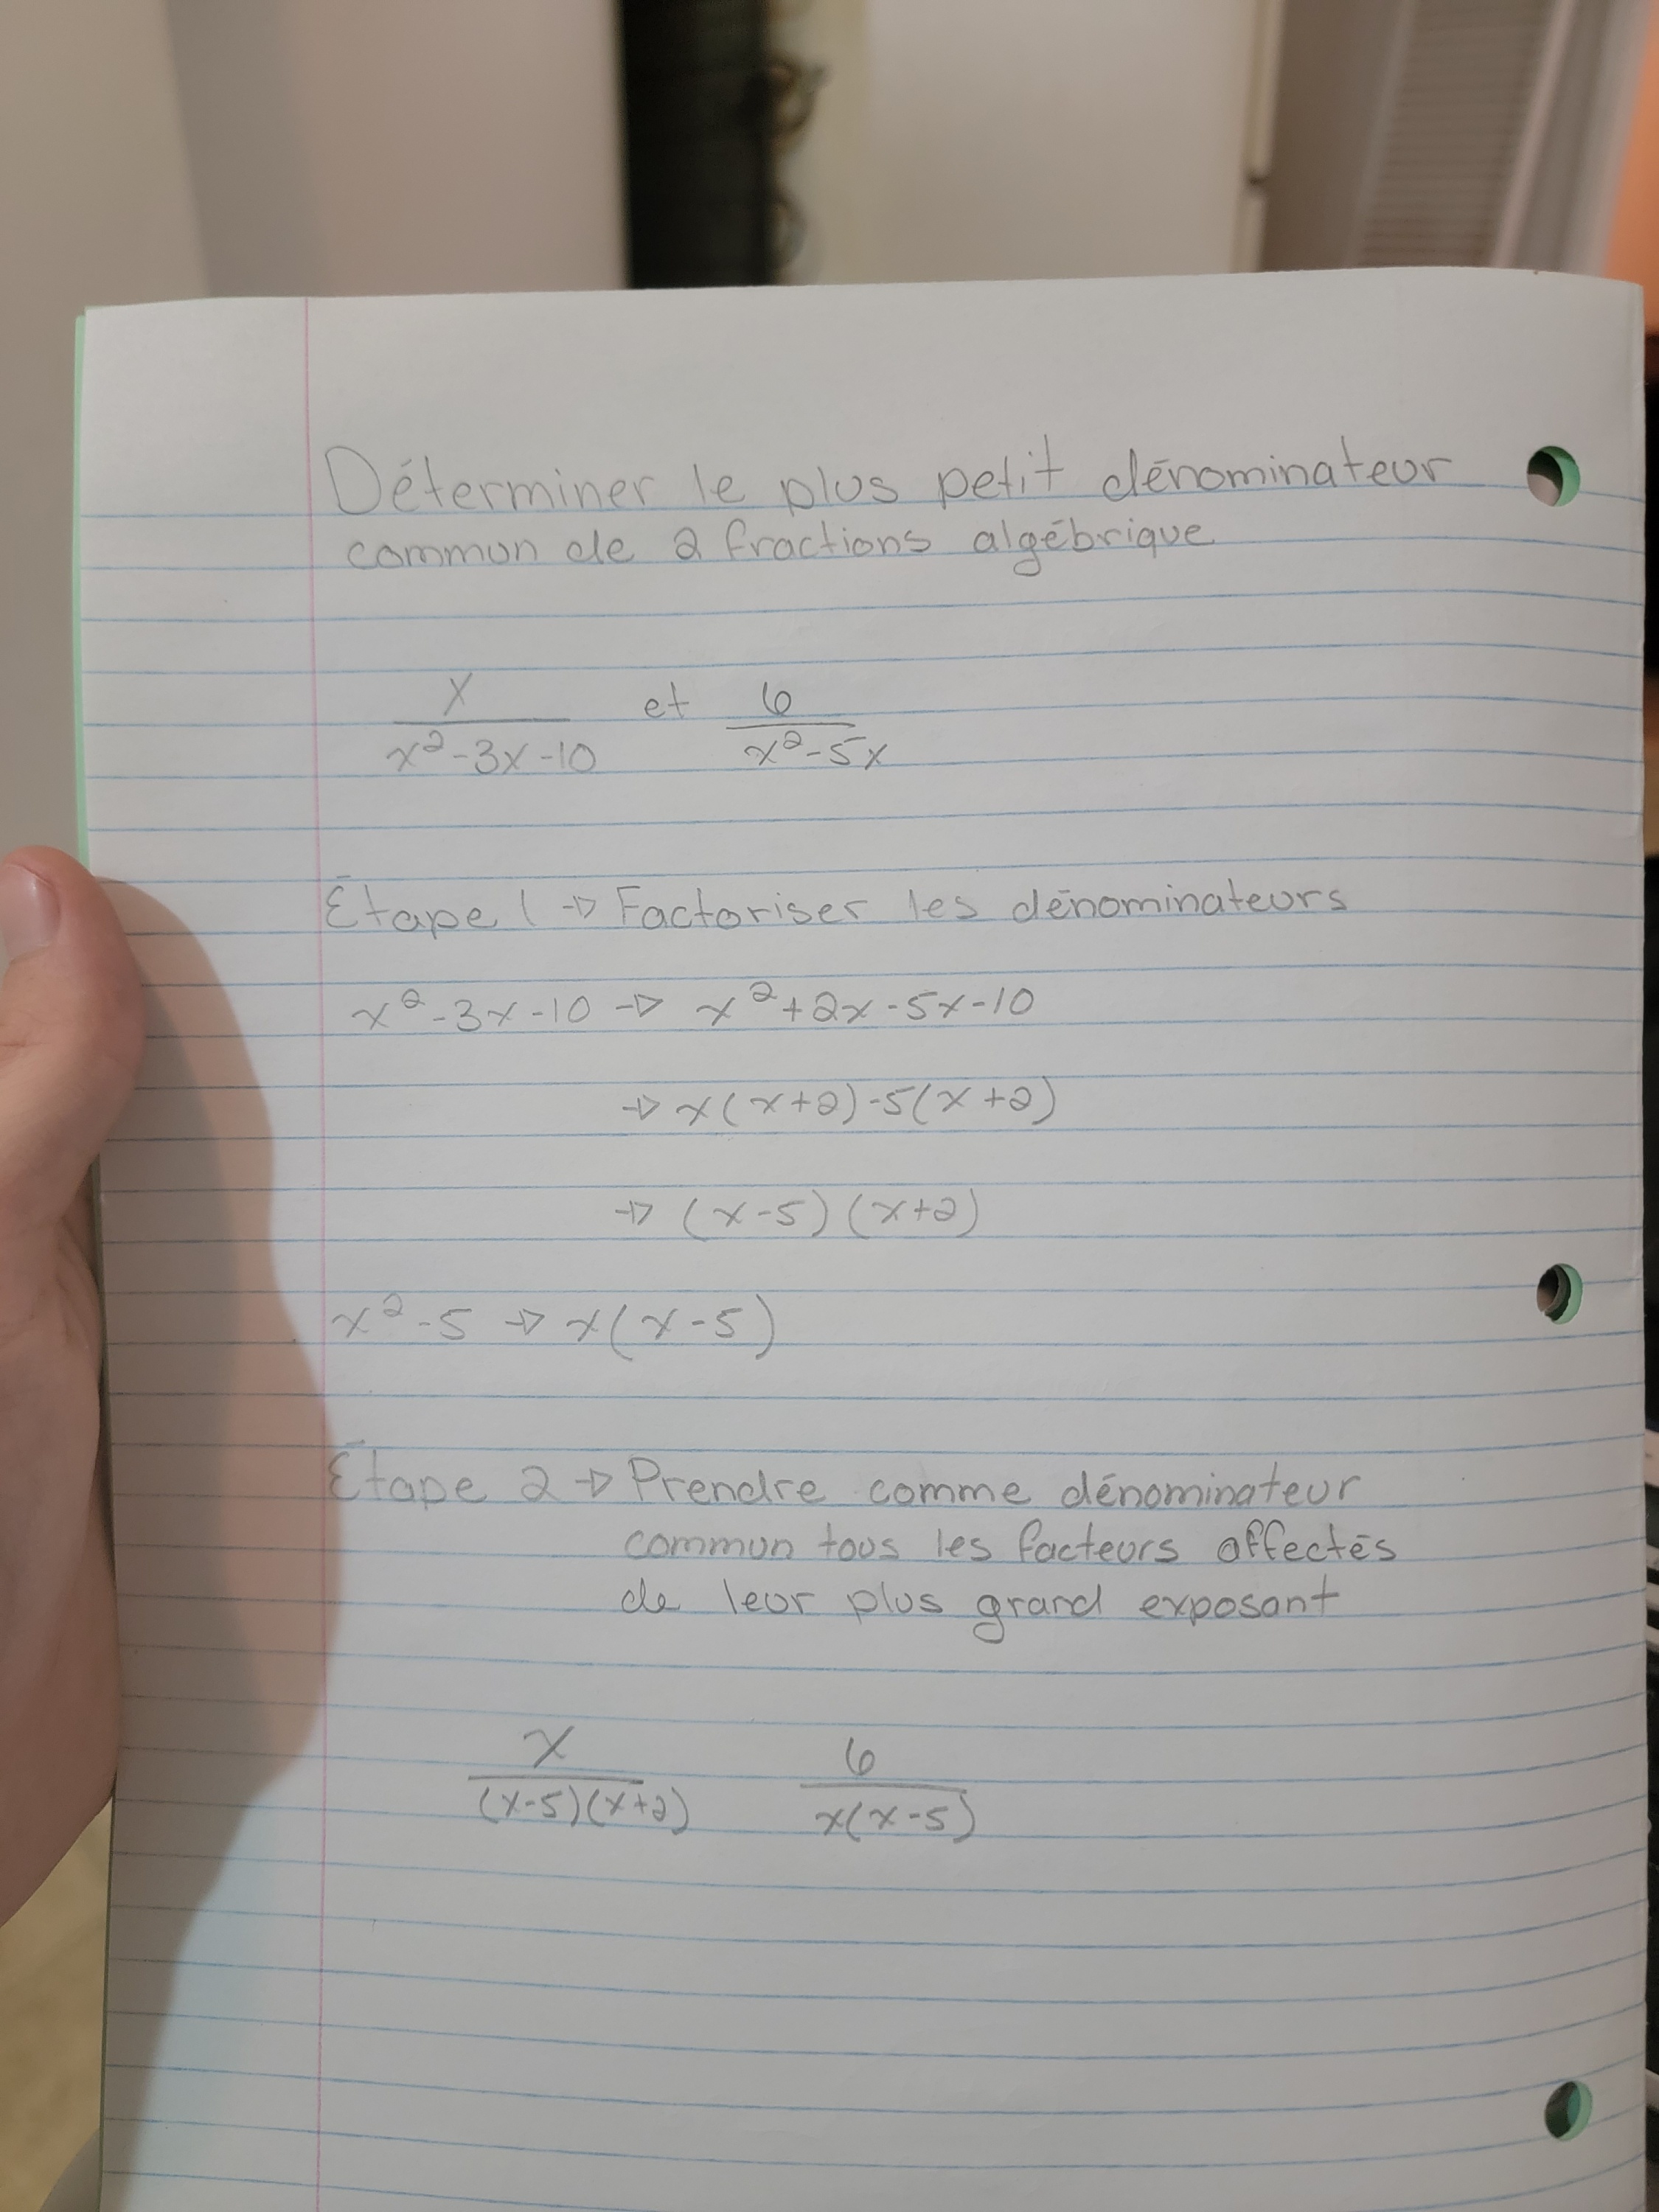 Déterminer le plus petit dénominateur
commun de 2 fractions algébrique
x/(x²-3x-10) et 6/(x²-5x)
Étape 1 → Factoriser les dénominateurs
x²-3x-10 → x²+2x-5x-10
→ x(x+2)-5(x+2)
→ (x-5)(x+2)
x²-5 → x(x-5)
Étape 2 → Prendre comme dénominateur
commun tous les facteurs affectés
de leur plus grand exposant
x/((x-5)(x+2)) 6/(x(x-5))